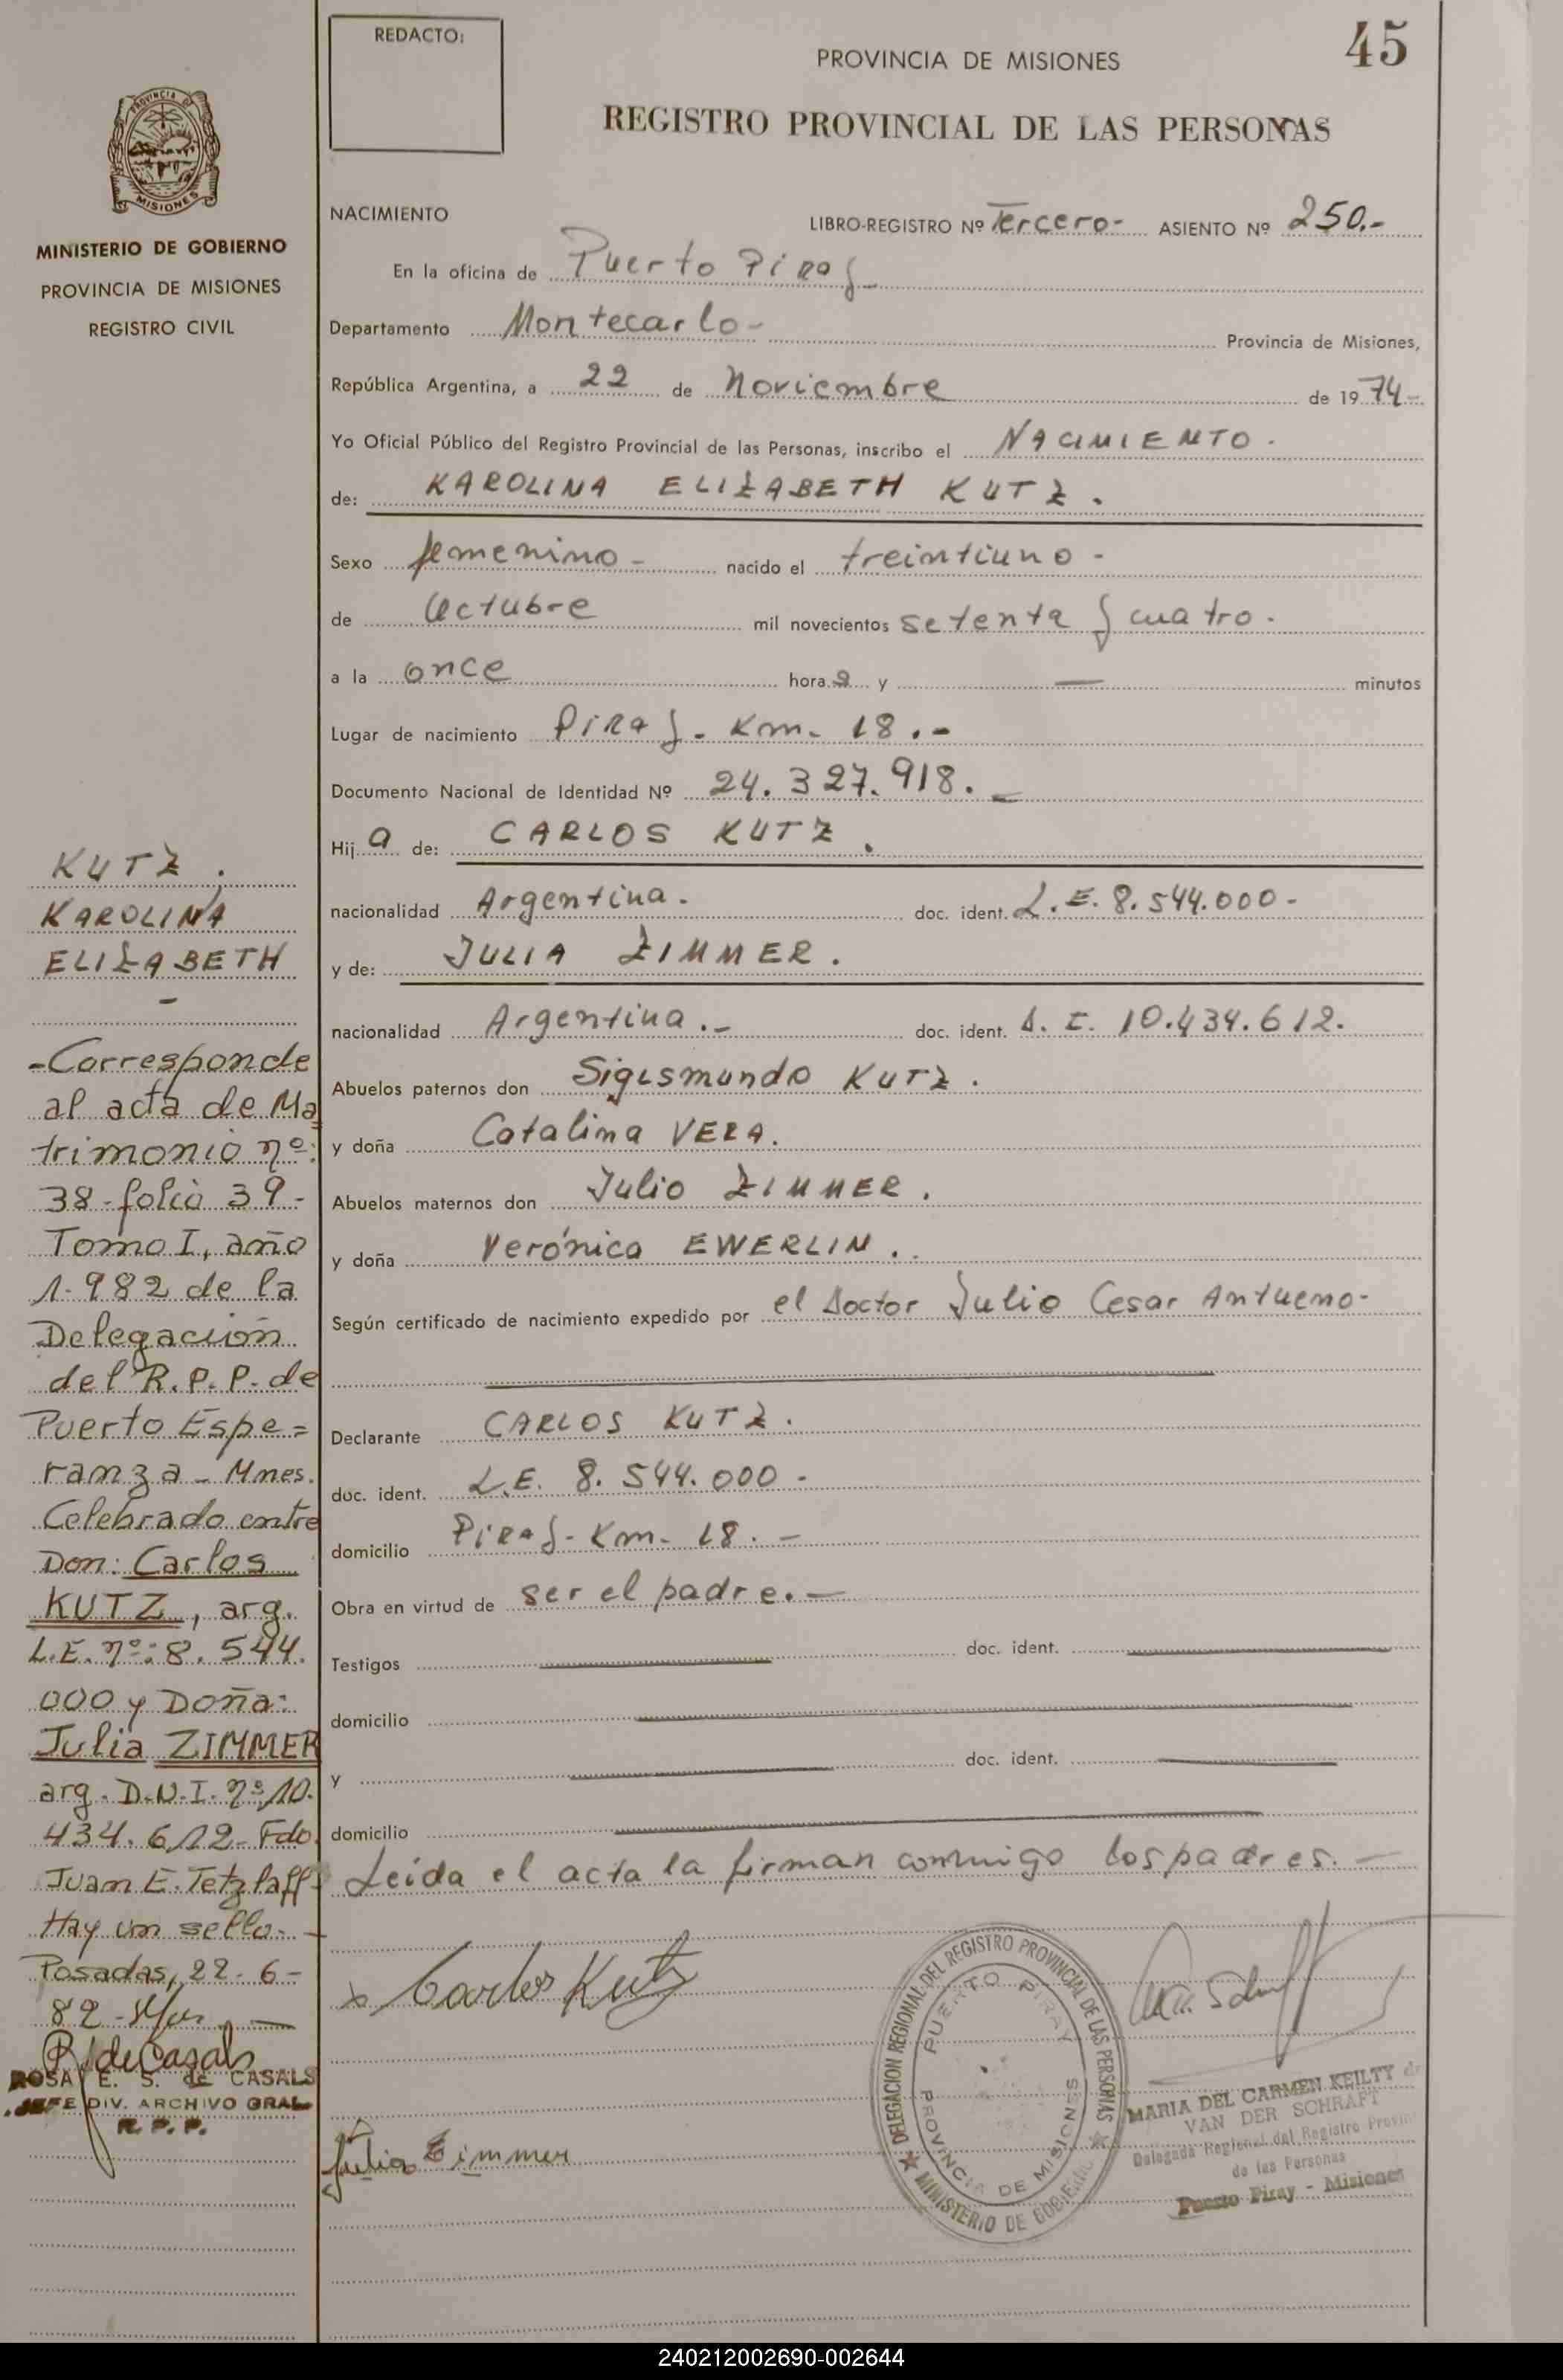 REDACTO:
PROVINCIA DE MISIONES
45
REGISTRO PROVINCIAL DE LAS PERSONAS
PROVINCIA DE
MISIONES
MINISTERIO DE GOBIERNO
PROVINCIA DE MISIONES
REGISTRO CIVIL
NACIMIENTO
LIBRO-REGISTRO Nº Tercero- ASIENTO Nº 250.-
En la oficina de Puerto Piray
Departamento Montecarlo- Provincia de Misiones,
República Argentina, a 22 de Noviembre de 1974-
Yo Oficial Público del Registro Provincial de las Personas, inscribo el NACIMIENTO.
de: KAROLINA ELIZABETH KUTZ.
Sexo femenino- nacido el treintiuno-
de Octubre mil novecientos setenta y cuatro.
a la once hora s y — minutos
Lugar de nacimiento Piray. Km. 18.-
Documento Nacional de Identidad Nº 24.327.918.-
Hij a de: CARLOS KUTZ.
nacionalidad Argentina. doc. ident. L.E. 8.544.000-
y de: JULIA ZIMMER.
nacionalidad Argentina.- doc. ident. D.I. 10.434.612.
Abuelos paternos don Sigismundo KUTZ.
y doña Catalina VERA.
Abuelos maternos don Julio ZIMMER.
y doña Verónica EWERLIN.
Según certificado de nacimiento expedido por el Doctor Julio Cesar
Declarante CARLOS KUTZ.
doc. ident. L.E. 8.544.000-
domicilio Piray- Km- 18.-
Obra en virtud de ser el padre.-
Testigos doc. ident.
domicilio
y doc. ident.
domicilio
Leida el acta la firman conmigo los padres.-
KUTZ.
KAROLINA
ELIZABETH
-
-Corresponde
al acta de Ma
trimonio nº:
38-folio 39-
Tomo I, año
1.982 de la
Delegación
del R.P.P. de
Puerto Espe=
ranza - Mnes.
Celebrado entre
Don: Carlos
KUTZ, arg.
L.E. nº: 8.544.
000 y Doña:
Julia ZIMMER
arg. D.N.I. nº 10.
434.612- Fdo.
Juan E. Tetzlaff-
Hay un sello.-
Posadas, 22-6-
82-
R. de Casals
ROSA E. S. de CASALS
JEFE DIV. ARCHIVO GRAL.
R. P. P.
x Carlos Kutz
Julia Zimmer
DELEGACION REGIONAL DEL REGISTRO PROVINCIAL DE LAS PERSONAS
MINISTERIO DE GOBIERNO
PUERTO PIRAY
PROVINCIA DE MISIONES
MARIA DEL CARMEN KEILTY de
VAN DER SCHRAFT
Delegada Regional del Registro Provin
de las Personas
Puerto Piray - Misiones
240212002690-002644